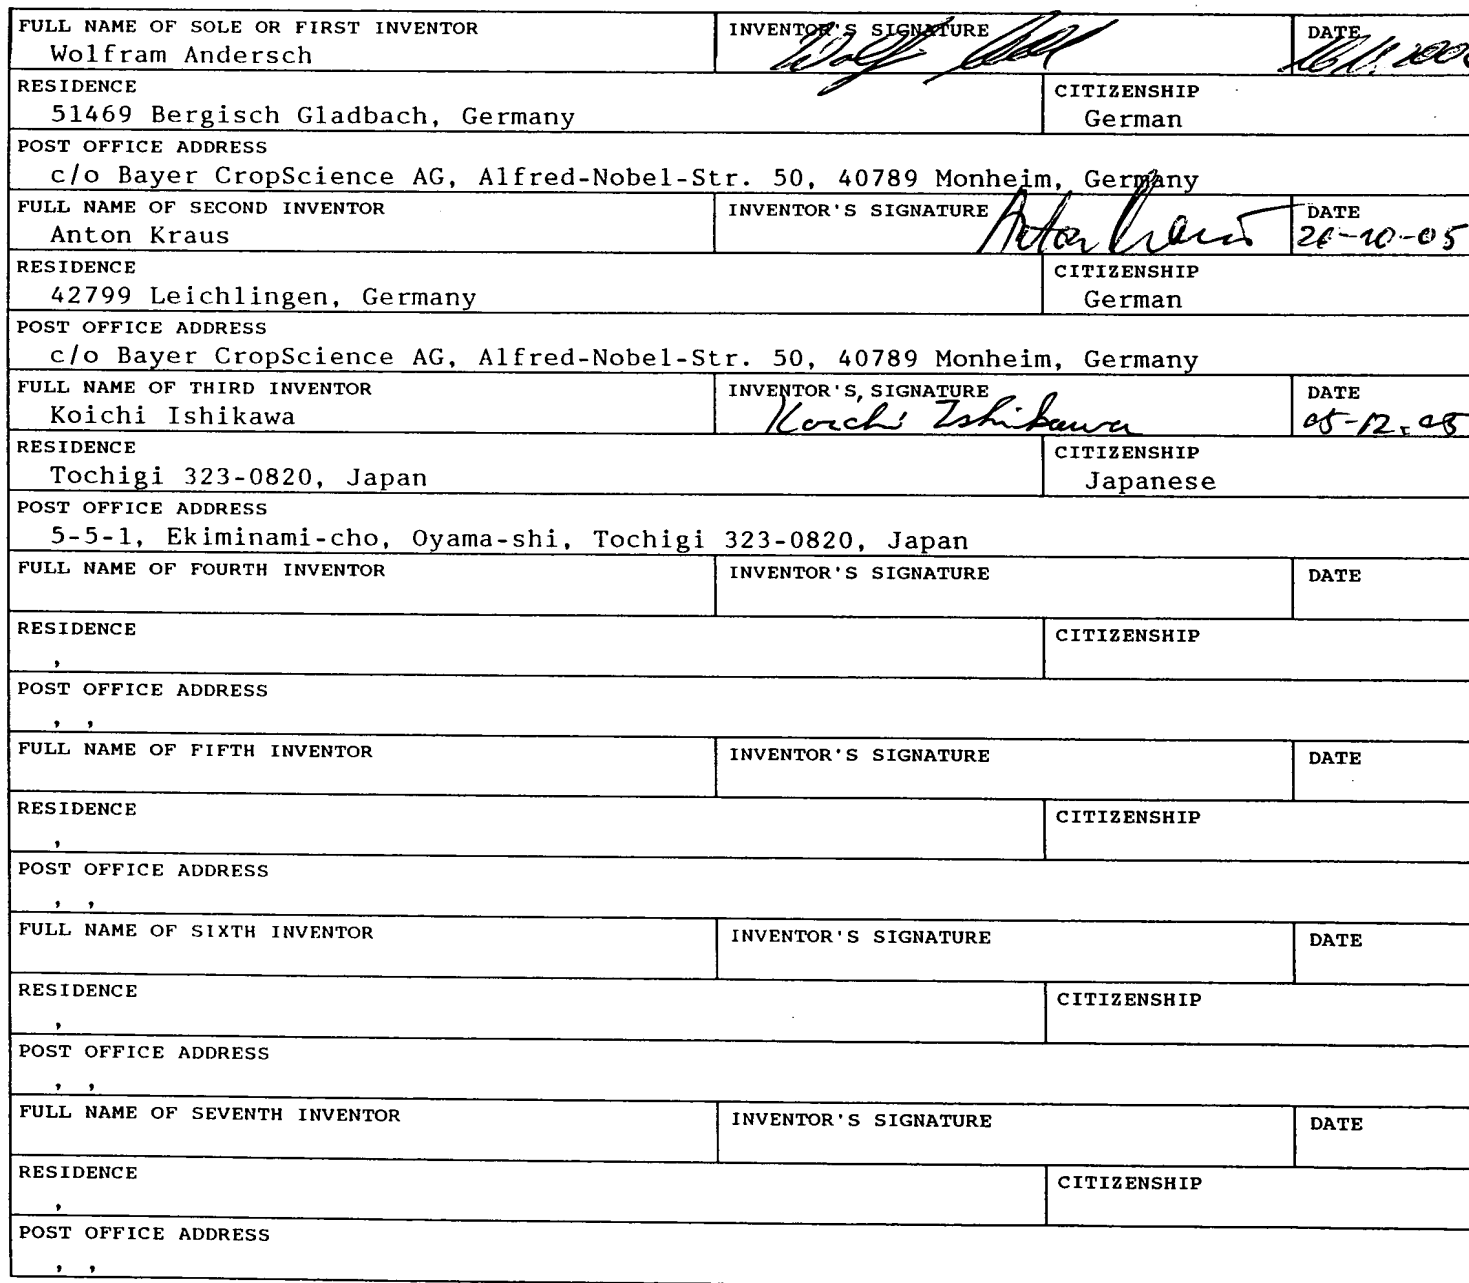 FULL NAME OF SOLE OR FIRST INVENTOR INVENTOR'S SIGNATURE DATE
Wolfram Andersch
RESIDENCE CITIZENSHIP
51469 Bergisch Gladbach, Germany German
POST OFFICE ADDRESS
c/o Bayer CropScience AG, Alfred-Nobel-Str. 50, 40789 Monheim, Germany
FULL NAME OF SECOND INVENTOR INVENTOR'S SIGNATURE DATE
Anton Kraus Anton Kraus
RESIDENCE CITIZENSHIP
42799 Leichlingen, Germany German
POST OFFICE ADDRESS
c/o Bayer CropScience AG, Alfred-Nobel-Str. 50, 40789 Monheim, Germany
FULL NAME OF THIRD INVENTOR INVENTOR'S SIGNATURE DATE
Koichi Ishikawa Koichi Ishikawa 05-12-05
RESIDENCE CITIZENSHIP
Tochigi 323-0820, Japan Japanese
POST OFFICE ADDRESS
5-5-1, Ekiminami-cho, Oyama-shi, Tochigi 323-0820, Japan
FULL NAME OF FOURTH INVENTOR INVENTOR'S SIGNATURE DATE
RESIDENCE CITIZENSHIP
,
POST OFFICE ADDRESS
, ,
FULL NAME OF FIFTH INVENTOR INVENTOR'S SIGNATURE DATE
RESIDENCE CITIZENSHIP
,
POST OFFICE ADDRESS
, ,
FULL NAME OF SIXTH INVENTOR INVENTOR'S SIGNATURE DATE
RESIDENCE CITIZENSHIP
,
POST OFFICE ADDRESS
, ,
FULL NAME OF SEVENTH INVENTOR INVENTOR'S SIGNATURE DATE
RESIDENCE CITIZENSHIP
,
POST OFFICE ADDRESS
, ,